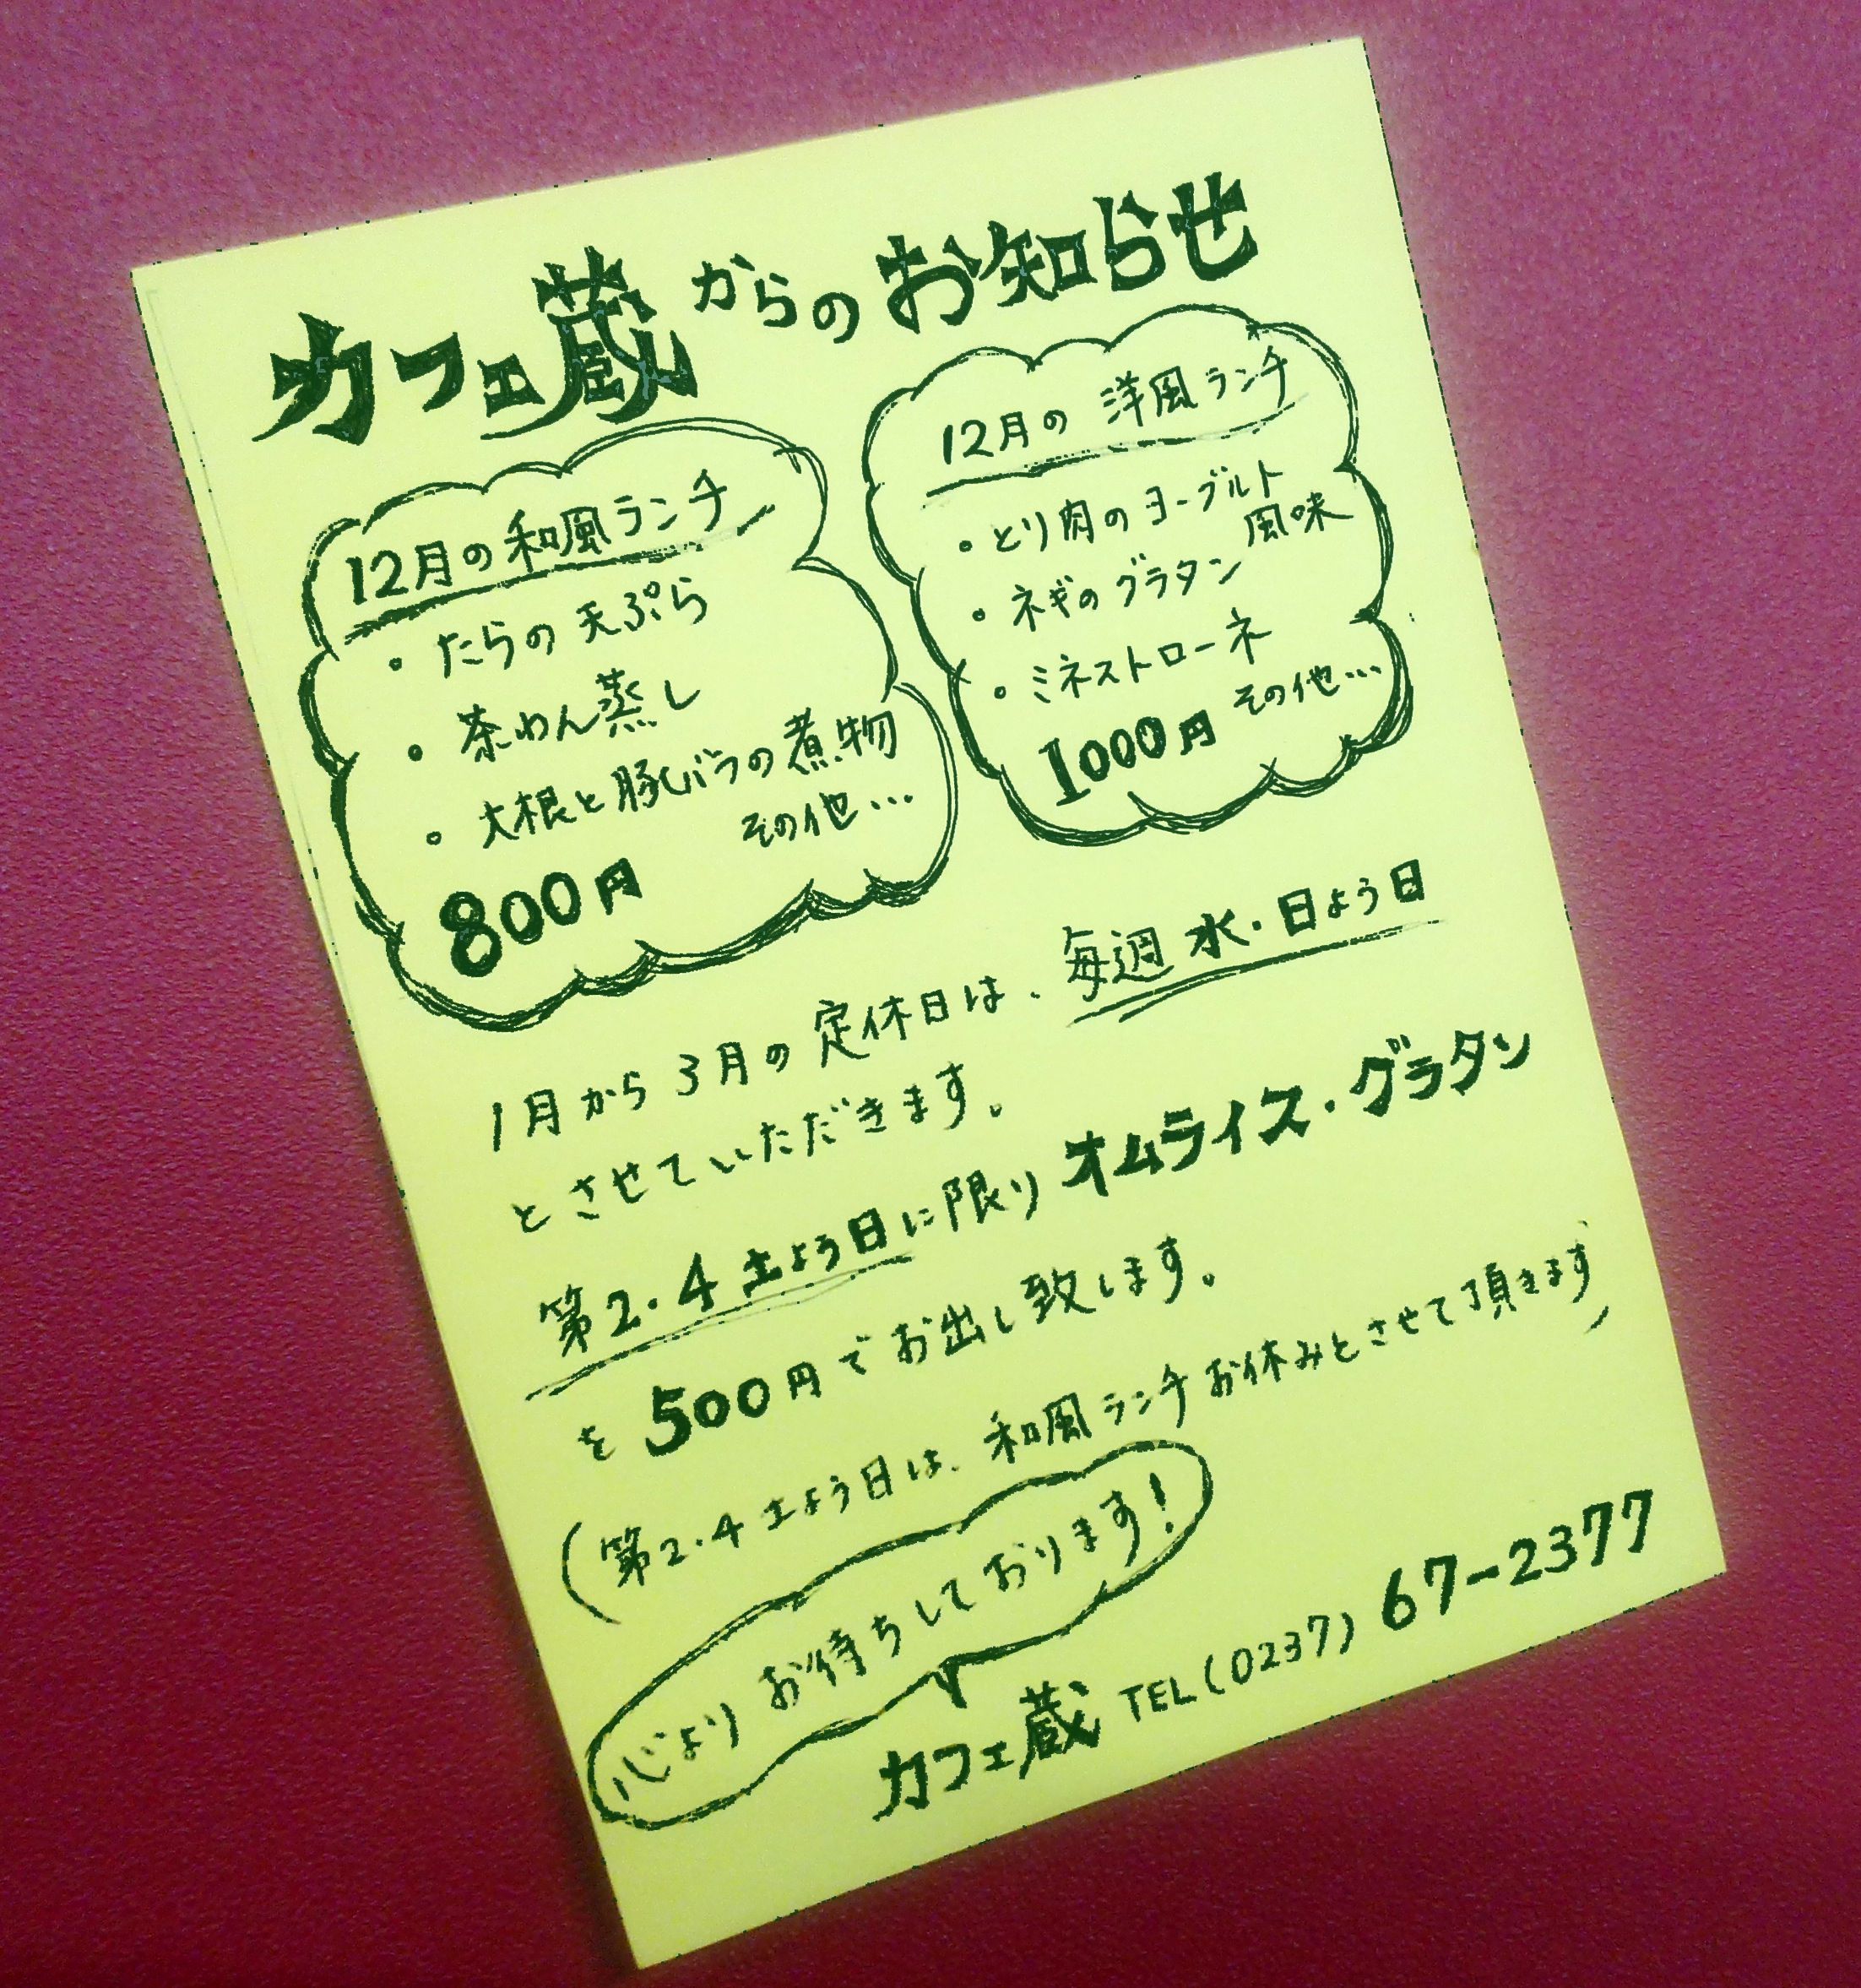 カフェ蔵からのお知らせ
12月の和風ランチ
・たらの天ぷら
・茶わん蒸し
・大根と豚バラの煮物
その他…
800円
12月の洋風ランチ
・とり肉のヨーグルト
風味
・ネギのグラタン
・ミネストローネ
その他…
1000円
1月から3月の定休日は、毎週水・日よう日
とさせていただきます。
第2・4土よう日に限りオムライス・グラタン
を500円でお出し致します。
(第2・4土よう日は、和風ランチお休みとさせて頂きます)
心よりお待ちしております!
カフェ蔵 TEL(0237)67-2377